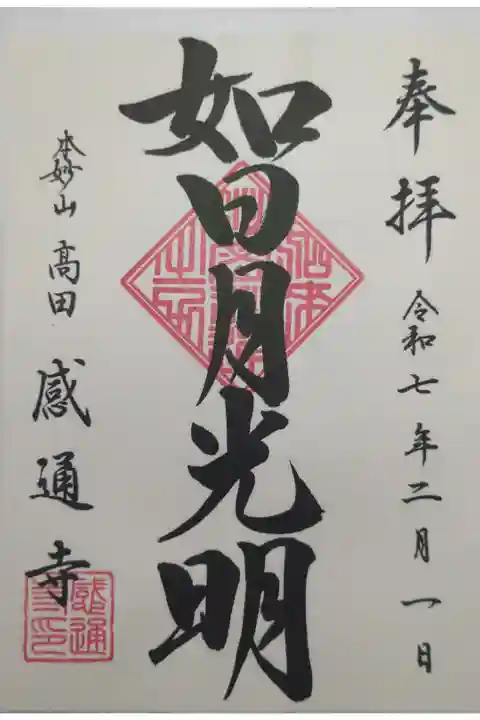 奉拝 令和七年二月一日
如日月光明
本妙山 高田 感通寺
感通